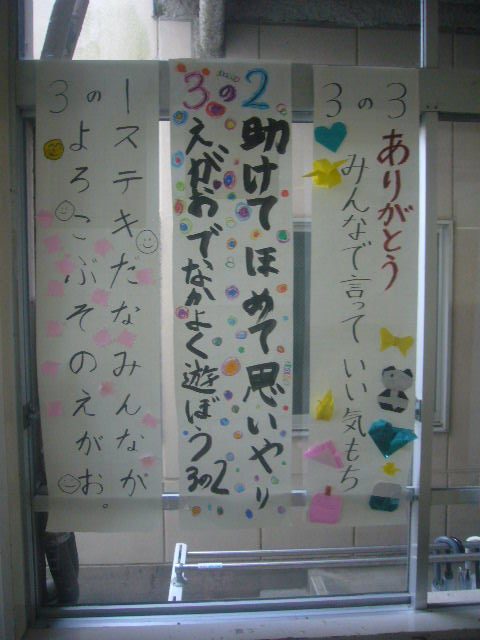 3の3
ありがとう
みんなで言って いい気もち
3の2
助けて ほめて 思いやり
えがおで なかよく 遊ぼう 3の2
3の1
ステキだな みんなが
よろこぶ そのえがお。